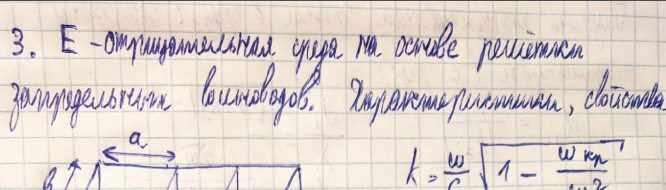 3. E - отрицательная среда на основе решётки
запредельных волноводов. Характеристики, свойства
a
k = w/c √(1 - wкр